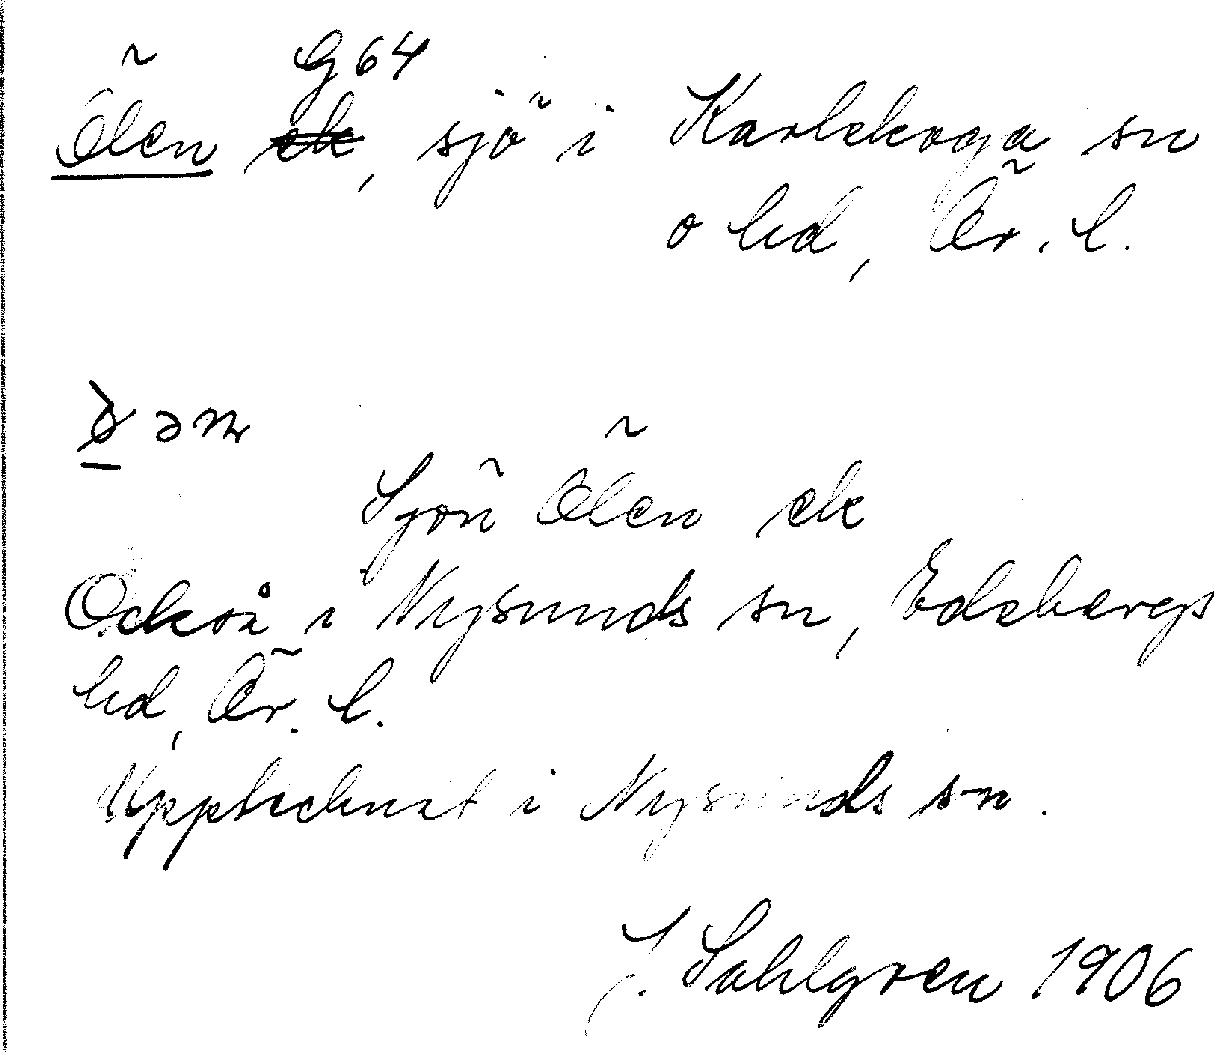 G 64
Ölen ek, sjö i Karlskoga sn
o hd, Ör. l.
Sjön Ölen ek
Också i Nysunds sn, Edsbergs
hd, Ör. l.
Upptecknat i Nysunds sn.
J. Sahlgren 1906